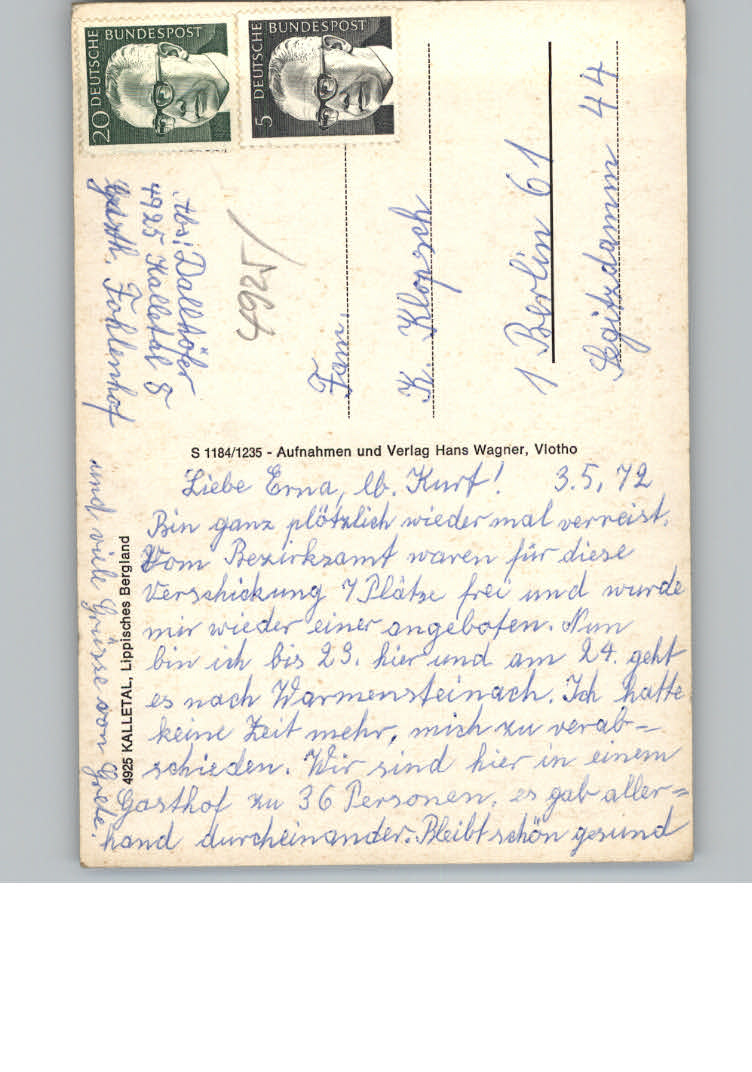 20 DEUTSCHE BUNDESPOST
5 DEUTSCHE BUNDESPOST
Abs: Dallhöfer
4925 Kalletal 5
Gasth. Fohlenhof
4925/
Fam.
K. Klopsch
1 Berlin 61
Segitzdamm 44
S 1184/1235 - Aufnahmen und Verlag Hans Wagner, Vlotho
4925 KALLETAL, Lippisches Bergland
Liebe Erna, lb. Kurt! 3.5.72
Bin ganz plötzlich wieder mal verreist.
Vom Bezirksamt waren für diese
Verschickung 7 Plätze frei und wurde
mir wieder einer angeboten. Nun
bin ich bis 23. hier und am 24. geht
es nach Warmensteinach. Ich hatte
keine Zeit mehr, mich zu verab-
schieden. Wir sind hier in einem
Gasthof zu 36 Personen, es gab aller=
hand durcheinander. Bleibt schön gesund
und viele Grüsse von Grete.